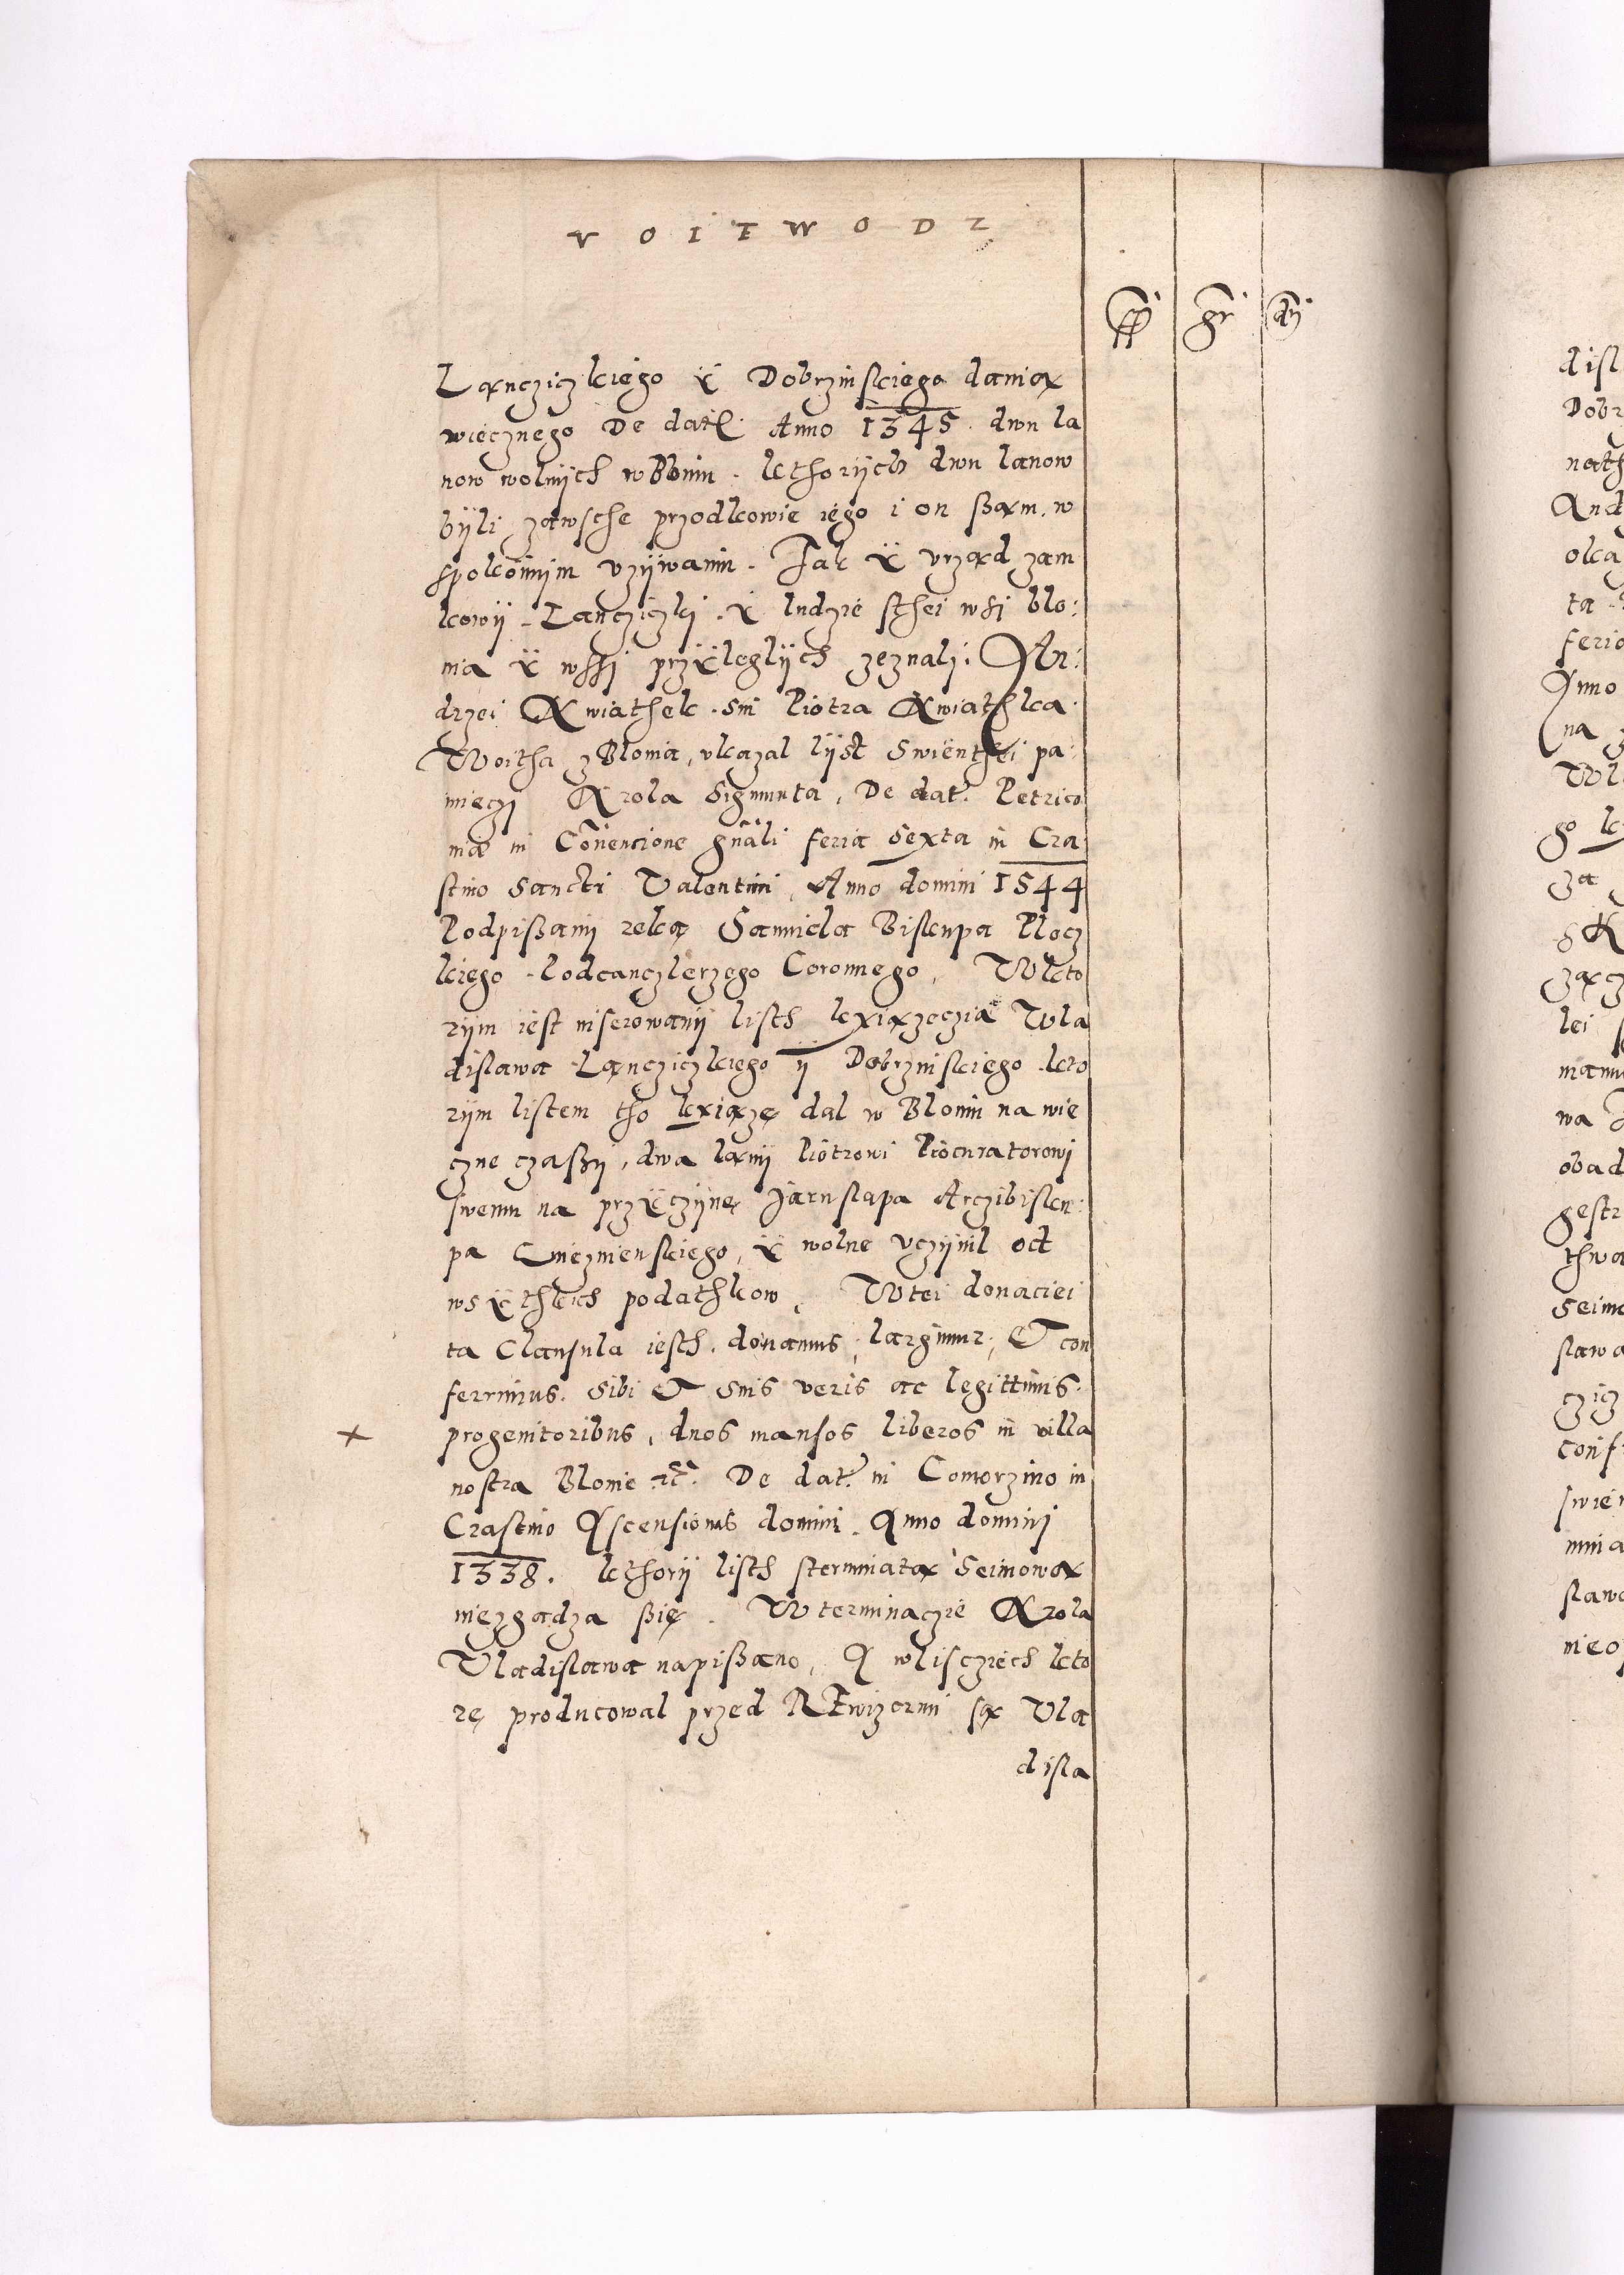 VOITWODZ
ff gr dn
Ląncziczkiego ÿ Dobrzinskiego danią
wiecznego De dat Anno 1345. dwu la
now wolnijch wBloniu. kthorijch dwu lanow
bijli zawsche przodkowie iego i on ßąm. w
spokoinijm vzijwaniu. Iak ÿ vrząd zam
kowij Lancziczki. ÿ ludzie sthei wsi blo:
nia ÿ wssi przÿleglijch zeznali. An:
drzei Kwiathek. sin Piotra Kwiathka.
Woitha zBlonia, vkazal lijst Swienthei pa:
mieczi Krola Sigmunta, De dat. Petrico
niæ in Convencione gnali feria Sexta in Cra
stino Sancti Valentini, Anno domini 1544
Podpißanij reką Samuela Biskupa Plocz
kiego Podcanczlerzego Coronnego, Wkto
rijm iest inserowanij listh kxiązęczia Wla
dislawa Lancziczkiego ij Dobrzinskiego kto
rijm listem tho kxiązę dal w Bloniu na wie
czne czaßij, dwa lanij Piotrowi Procuratorowi
swemu na przÿczijnę Jaruslapa Arczibisku:
pa Gnieznienskiego, ÿ wolne vczijnil od
wsÿthkich podathkow, Wtei donaciei
ta Clausula iesth. donamus, largimur, Et con
ferrimus. Sibi Et Suis veris ac legittimis.
progenitoribus, duos mansos liberos in villa
nostra Blonie etc. De dat in Comorzino in
Crastino Ascensionis domini. Anno domini
1338. kthorij listh sterminatą Seimową
niezgadza ßię. Wterminaczie Krola
Vladislawa napißano, A wliscziech kto
rę producowal przed REwizormi są Vla
disla